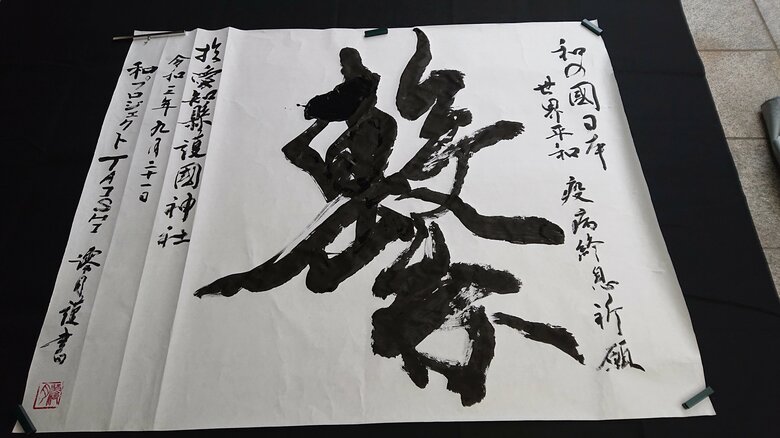 和の國日本
世界平和 疫病終息祈願
繋
於 愛知縣護國神社
令和三年九月二十一日
和プロジェクトTAISHI 澪月謹書